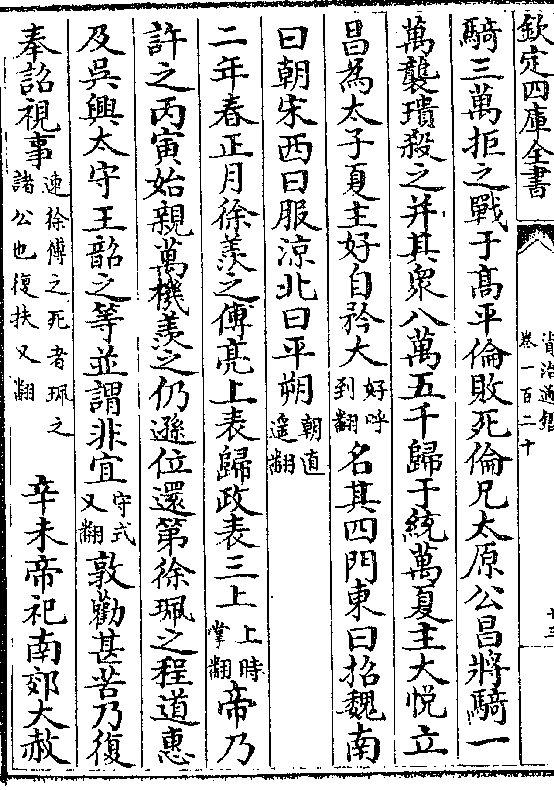 欽定四庫全書
資治通鑑
卷一百二十
十三
騎三萬拒之戰于髙平倫敗死倫兄太原公昌將騎一
萬襲璝殺之并其衆八萬五千歸于統萬夏主大悦立
昌為太子夏主好自矜大好呼到翻名其四門東曰招魏南
曰朝宋西曰服涼北曰平朔朝直遥翻
二年春正月徐羨之傅亮上表歸政表三上上時掌翻帝乃
許之丙寅始親萬機羨之仍遜位還第徐珮之程道惠
及吳興太守王韶之等並謂非宜守式又翻敦勸甚苦乃復
奉詔視事連徐傅之死者珮之諸公也復扶又翻 辛未帝祀南郊大赦